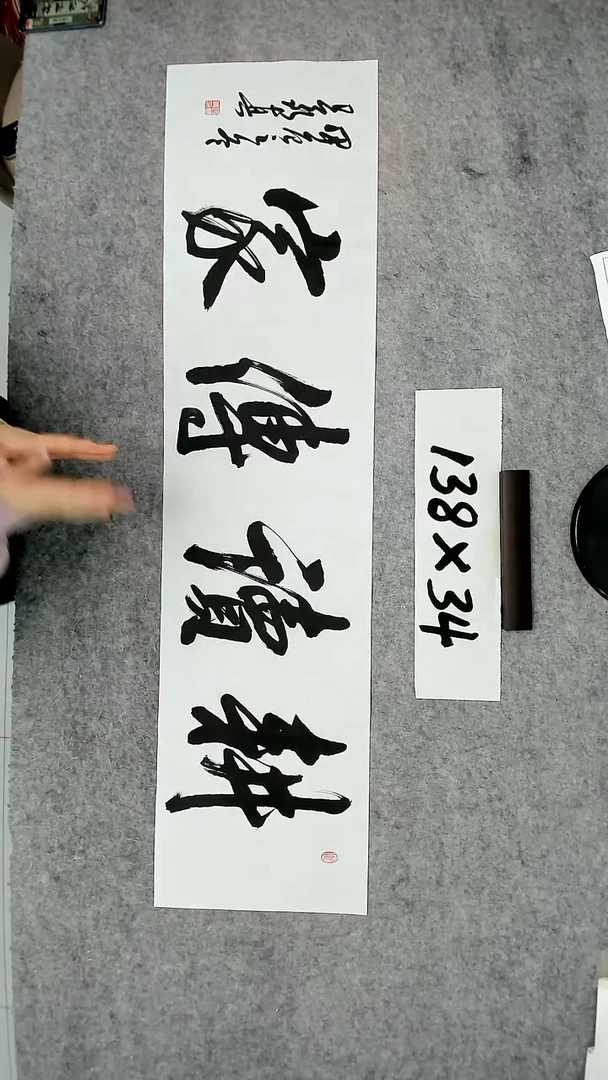 耕讀傳家
138×34